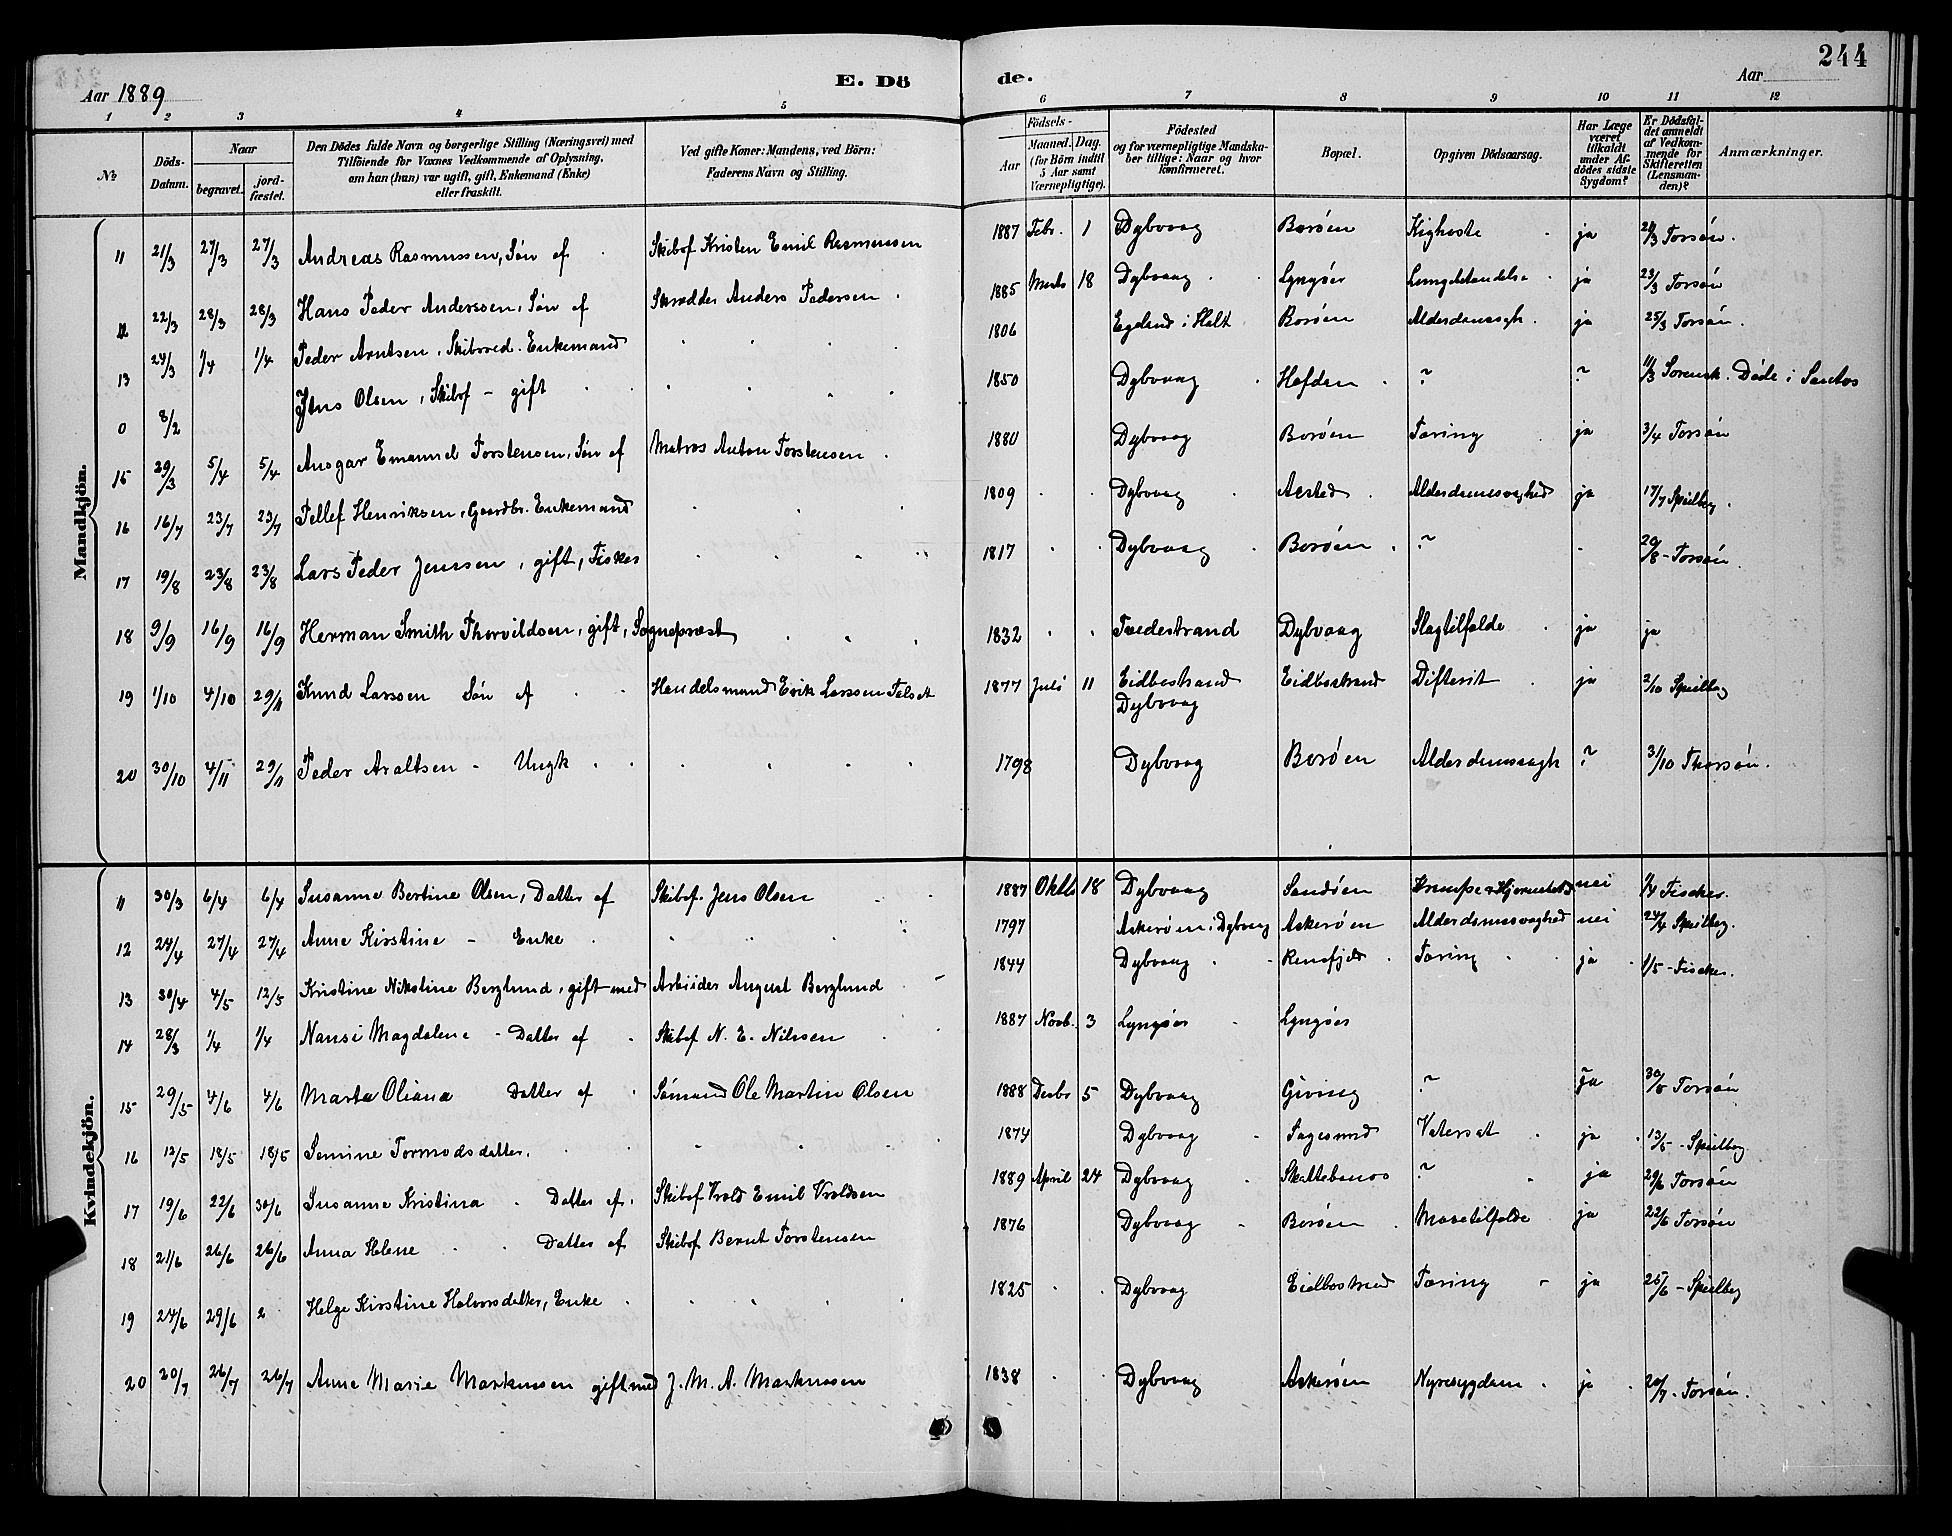 244
Aar 1889
E. Dö
de.
Aar
1 2 3 4 5 6 7 8 9 10 11 12
№
Döds-Datum.
Naar
begravet.
jord-fæstet.
Den Dödes fulde Navn og borgerlige Stilling (Næringsvei) med
Tilföiende for Voxnes Vedkommende af Oplysning,
om han (hun) var ugift, gift, Enkemand (Enke)
eller fraskilt.
Ved gifte Koner: Mandens, ved Börn:
Faderens Navn og Stilling.
Födsels-
Aar
Maaned. Dag.
(for Börn indtil
5 Aar samt
Værnepligtige).
Födested
og for værnepligtige Mandska-
ber tillige: Naar og hvor
konfirmeret.
Bopæl.
Opgiven Dödsaarsag.
Har Læge
været
tilkaldt
under Af-
dödes sidste
Sygdom?
Er Dödsfal-
det anmeldt
af Vedkom-
mende for
Skifteretten
(Lensman-
den)?
Anmærkninger.
Mandkjön.
11 21/3 27/3 27/3 Andreas Rasmussen, Søn af Skibsf Kristen Emil Rasmussen 1887 Febr. 1 Dybvaag Borøen Kighoste ja 20/3 Torsøn.
12 22/3 28/3 28/3 Hans Peder Anderssen, Søn af Skrædder Anders Pedersen 1885 Marts 18 Dybvaag Lyngøer Lungebetændelse ja 23/3 Torsøn
13 24/3 1/4 1/4 Peder Arntsen, Skibsred. Enkemand 1806 Egeland i Holt Borøen Alderdomssvgh. ja 25/3 Torsøn.
0 8/2 Jens Olsen, Skibsf - gift 1850 Dybvaag Hafden ? ? 11/3 Sorensk. Døde i Santos
15 29/3 5/4 5/4 Ansgar Emanuel Torstensen, Søn af Matros Anton Torstensen 1880 Dybvaag Borøen Tæring ja 3/4 Torsøn
16 16/7 23/7 23/7 Tellef Henriksen, Gaardbr. Enkemand 1809 Dybvaag Alderdomssvaghed ja 17/7 Speilberg.
17 19/8 23/8 23/8 Lars Peder Jenssen, gift, Fisker 1817 Dybvaag Borøen ? 20/8 - Torsøn.
18 9/9 16/9 16/9 Herman Smith Thorvildsen, gift, Sogneprest 1832 Tvedestrand Dybvaag Slagtilfælde ja ja
19 1/10 4/10 29/11 Knud Larssen Søn af Handelsmand Erik Larssen Falset 1877 Juli 11 Eidbostrand Dybvaag Eidbostrand Difterit ja 2/10 Speilberg
20 30/10 4/11 29/11 Peder Araltsen - Ungk 1798 Dybvaag Borøen Alderdomssvagh ? 31/10 Thorsøn.
Kvindekjön.
11 30/3 6/4 6/4 Susanne Bertine Olsen, Datter af Skibsf. Jens Olsen 1887 Oktb 18 Dybvaag Sandøen nei 1/4 Fischer.
12 24/4 27/4 27/4 Anne Kirstine - Enke 1797 Askerøen i Dybvaag Askerøen Alderdomssvaghed nei 24/4 Speilberg.
13 30/4 4/5 12/5 Kristine Nikoline Berglund, gift med Arbeider August Berglund 1844 Dybvaag Tæring ja 1/5 - Fischer.
14 28/3 1/4 1/4 Nansi Magdalene - Datter af Skibsf N. E. Nilssen 1887 Novb. 3 Lyngøer Lyngøer
15 29/5 4/6 4/6 Marta Oliana Datter af Sømand Ole Martin Olsen 1888 Decbr 5 Dybvaag Giving ? ja 30/5 Torsøn
16 12/5 18/5 18/5 Semine Tormodsdatter. 1874 Dybvaag Fagesund Vatersot ja 13/5 - Speilberg
17 19/6 22/6 30/6 Susanne Kristina - Datter af Skibsf Vrold Emil Vroldsen 1889 April 24 Dybvaag Skattebenes ? ja 20/6 Torsøn
18 21/6 26/6 26/6 Anna Helene Datter af Skibsf Bernt Torstensen 1876 Dybvaag Borøen Mavetilfælde ja 22/6 Torsøn
19 24/6 29/6 2 Helge Kirstine Halvorsdatter, Enke 1825 Dybvaag Eidbostrand Tæring - ja 25/6 - Speilberg
20 20/7 26/7 26/7 Anne Marie Markussen gift med J. M. A. Markussen 1838 Dybvaag Askerøen Nyresygdom ja 20/7. Torsøn.